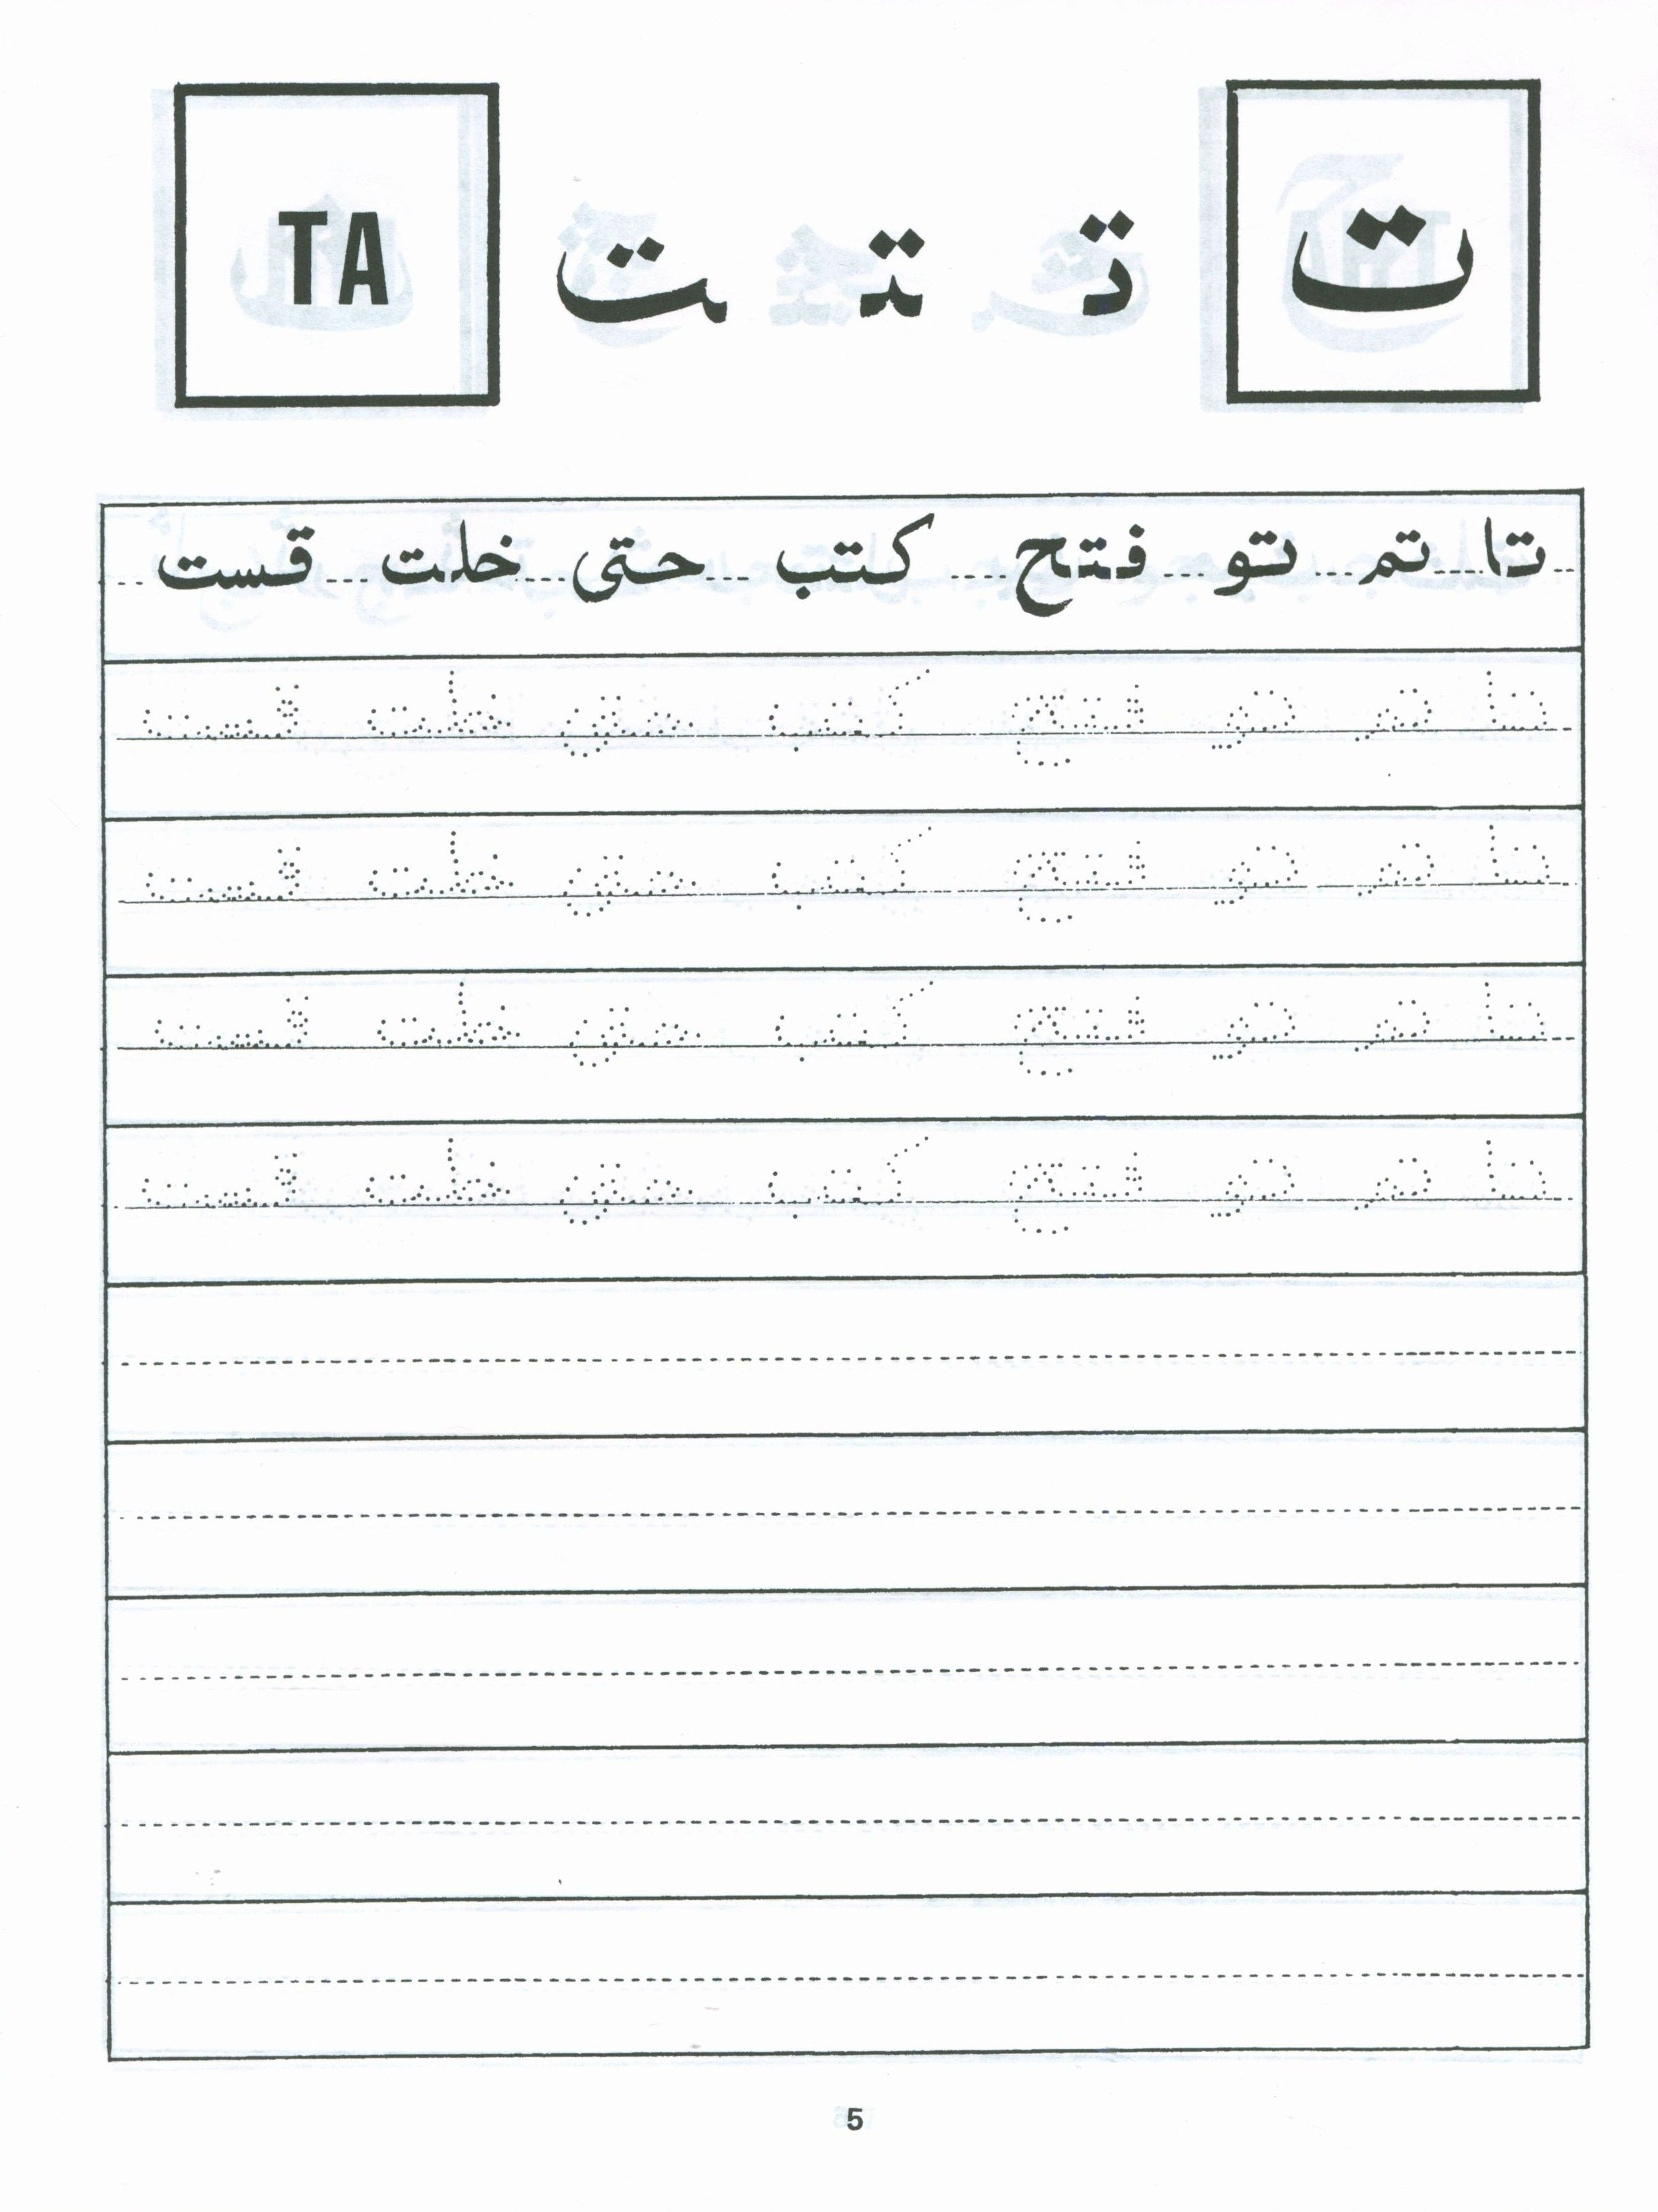 ت تـ ـتـ ـت TA
تا تم تو فتح كتب حتى خلت قست
تا تم تو فتح كتب حتى خلت قست
تا تم تو فتح كتب حتى خلت قست
تا تم تو فتح كتب حتى خلت قست
تا تم تو فتح كتب حتى خلت قست
5